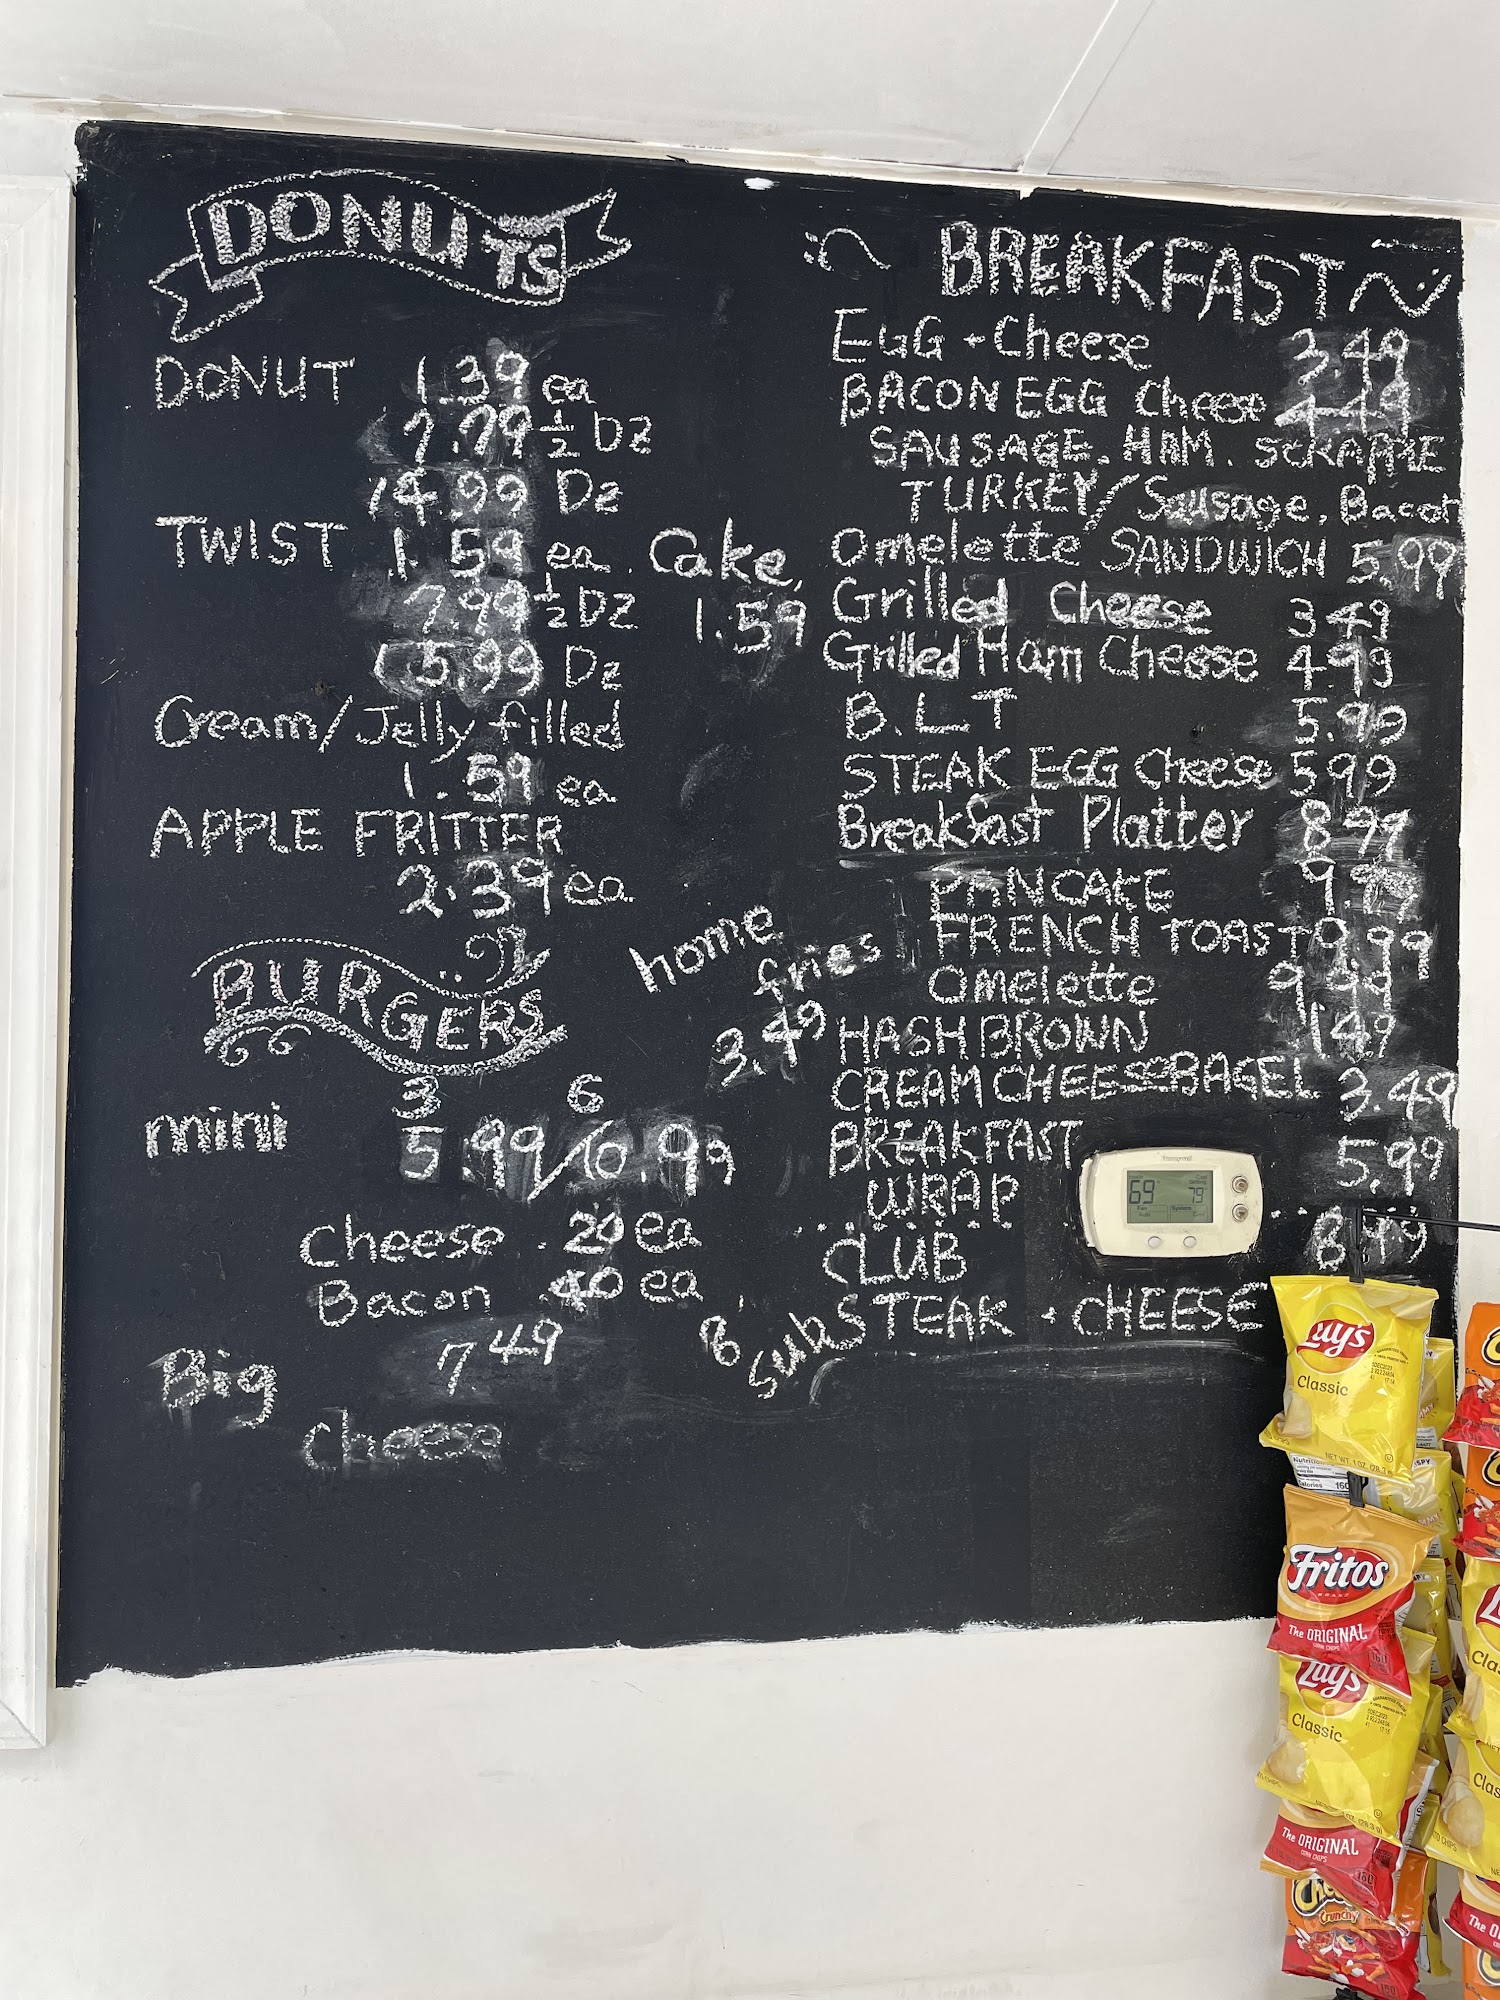 DONUTS
DONUT 1.39 ea
7.79 ½ DZ
14.99 Dz
TWIST 1.59 ea.
7.99 ½ DZ
15.99 Dz
Cake, 1.59
Cream/Jelly filled
1.59 ea
APPLE FRITTER
2.39 ea.
BURGERS
3 6
mini 5.99/10.99
Cheese .20 ea
Bacon .40 ea
Big 7.49
Cheese
BREAKFAST
EGG + Cheese 3.49
BACON EGG Cheese 4.49
SAUSAGE, HAM, SCRAPPLE
TURKEY/Sausage, Bacon
Omelette SANDWICH 5.99
Grilled Cheese 3.49
Grilled Ham Cheese 4.99
B.L.T 5.99
STEAK EGG Cheese 5.99
Breakfast Platter 8.99
PANCAKE 9.99
FRENCH TOAST 9.99
Omelette 9.99
home
fries
3.49
HASH BROWN 1.49
CREAM CHEESE BAGEL 3.49
BREAKFAST 5.99
WRAP
CLUB 8.49
8" Subs STEAK + CHEESE
Honeywell
69 79
Fan
Auto
System
Lay's
Classic
NET WT. 1 OZ. (28.3 g)
Fritos
BRAND
The ORIGINAL
CORN CHIPS
Lay's
Classic
The ORIGINAL
CORN CHIPS
Crunchy